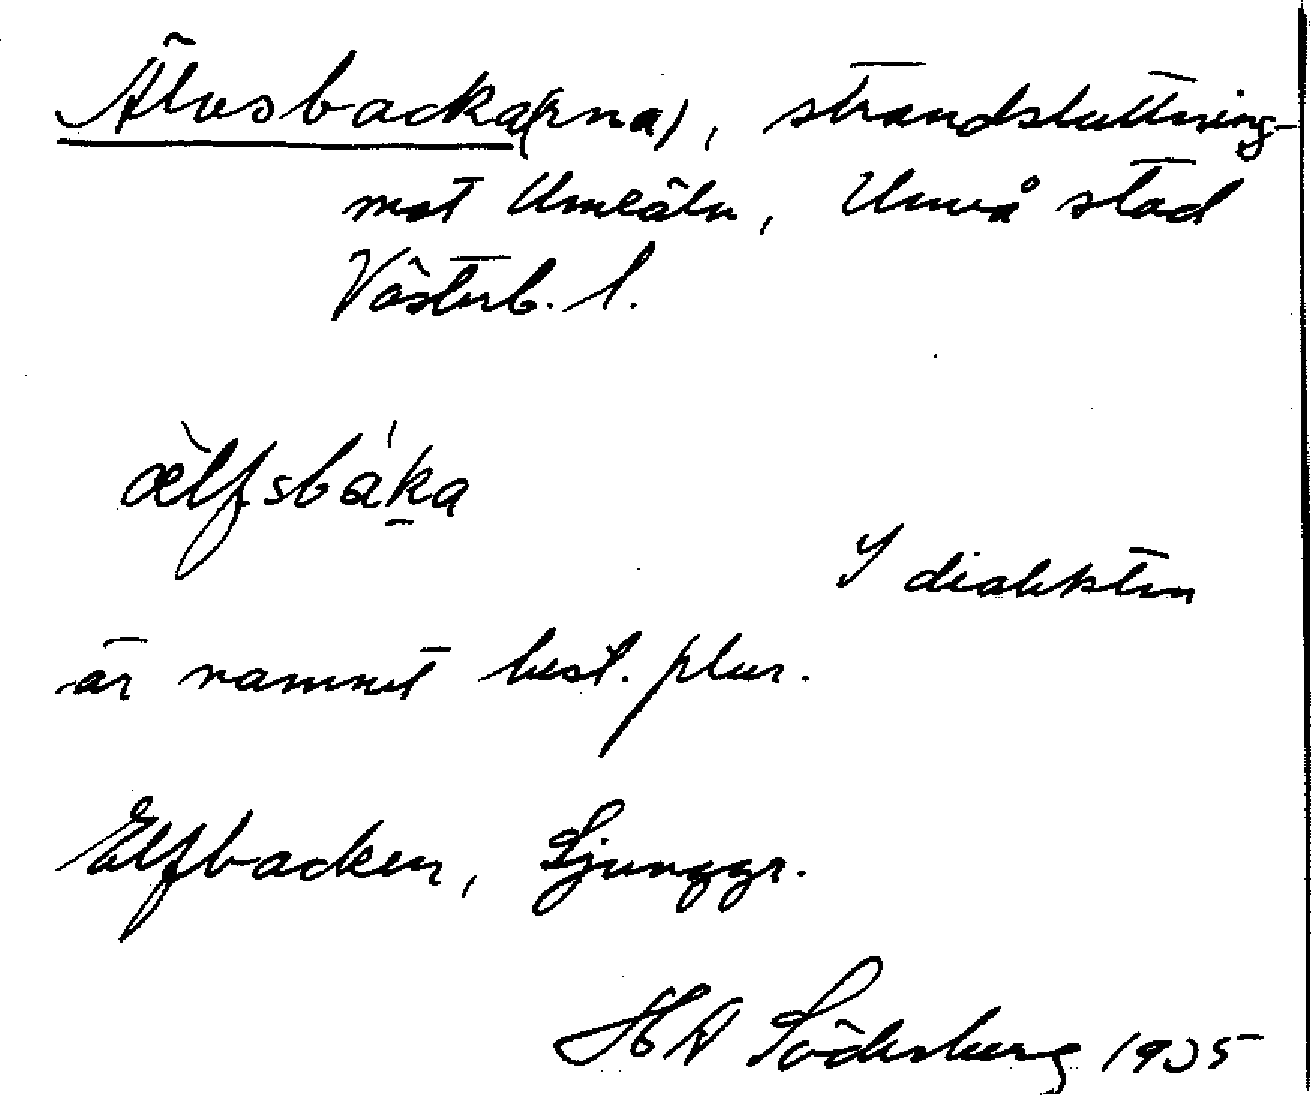 Älvsbacka(rna), strandsluttning
mot Umeälv, Umeå stad
Västerb. l.
æ̀lfsbák̲a
I dialekten
är namnet best. plur.
Elfbacken, Ljunggr.
HA Söderberg 1935